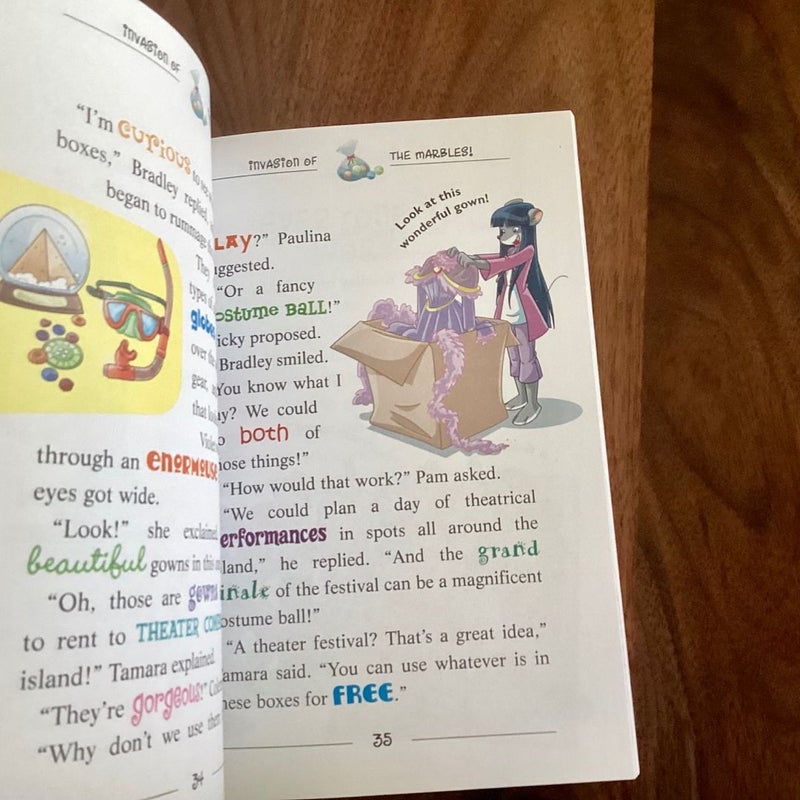 INVASION OF
"I'm curious to
boxes," Bradley replied,
began to rummage
They
types of
globes
over the
gear, a
that
Viole
through an ENORMOUSE
eyes got wide.
"Look!" she exclaimed
beautiful gowns in this
"Oh, those are gowns
to rent to THEATER COM
island!" Tamara explained.
"They're gorgeous!" Co
"Why don't we use them
34
INVASION OF THE MARBLES!
Look at this
wonderful gown!
LAY?" Paulina
ggested.
"Or a fancy
ostume BALL!"
icky proposed.
Bradley smiled.
You know what I
ay? We could
o both of
hose things!"
"How would that work?" Pam asked.
"We could plan a day of theatrical
erformances in spots all around the
land," he replied. "And the grand
inale of the festival can be a magnificent
ostume ball!"
"A theater festival? That's a great idea,"
amara said. "You can use whatever is in
hese boxes for FREE."
35